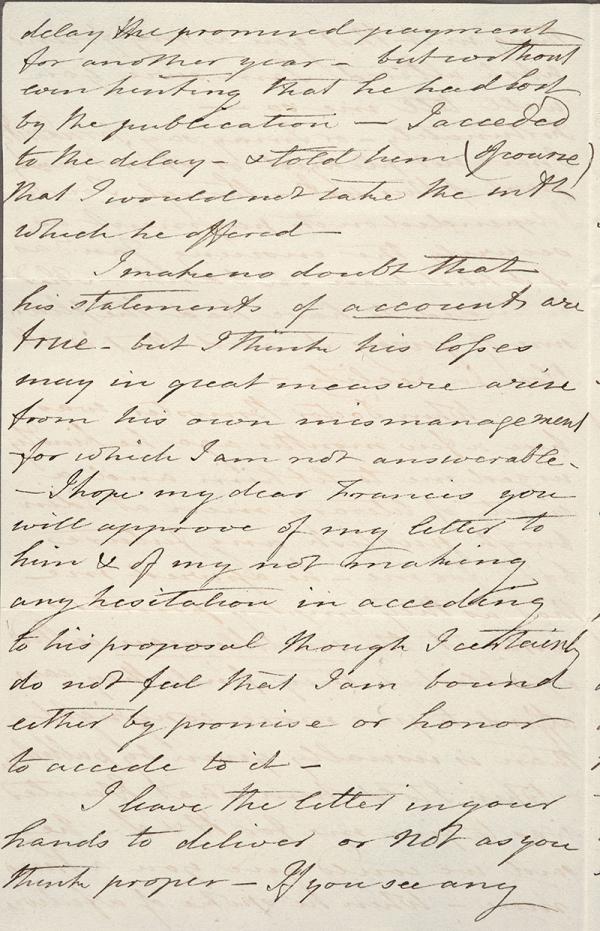 delay the promised payment
for another year - but without
even hinting that he had lost
by the publication - I acceded
to the delay - & told him (of course)
that I would not take the intst
which he offered -
I make no doubt that
his statements of accounts are
true - but I think his losses
may in great measure arise
from his own mismanagement
for which I am not answerable -
- I hope my dear Francis you
will approve of my letter to
him & of my not making
any hesitation in acceding
to his proposal though I certainly
do not feel that I am bound
either by promise or honor
to accede to it -
I leave the letter in your
hands to deliver or not as you
think proper - If you see any